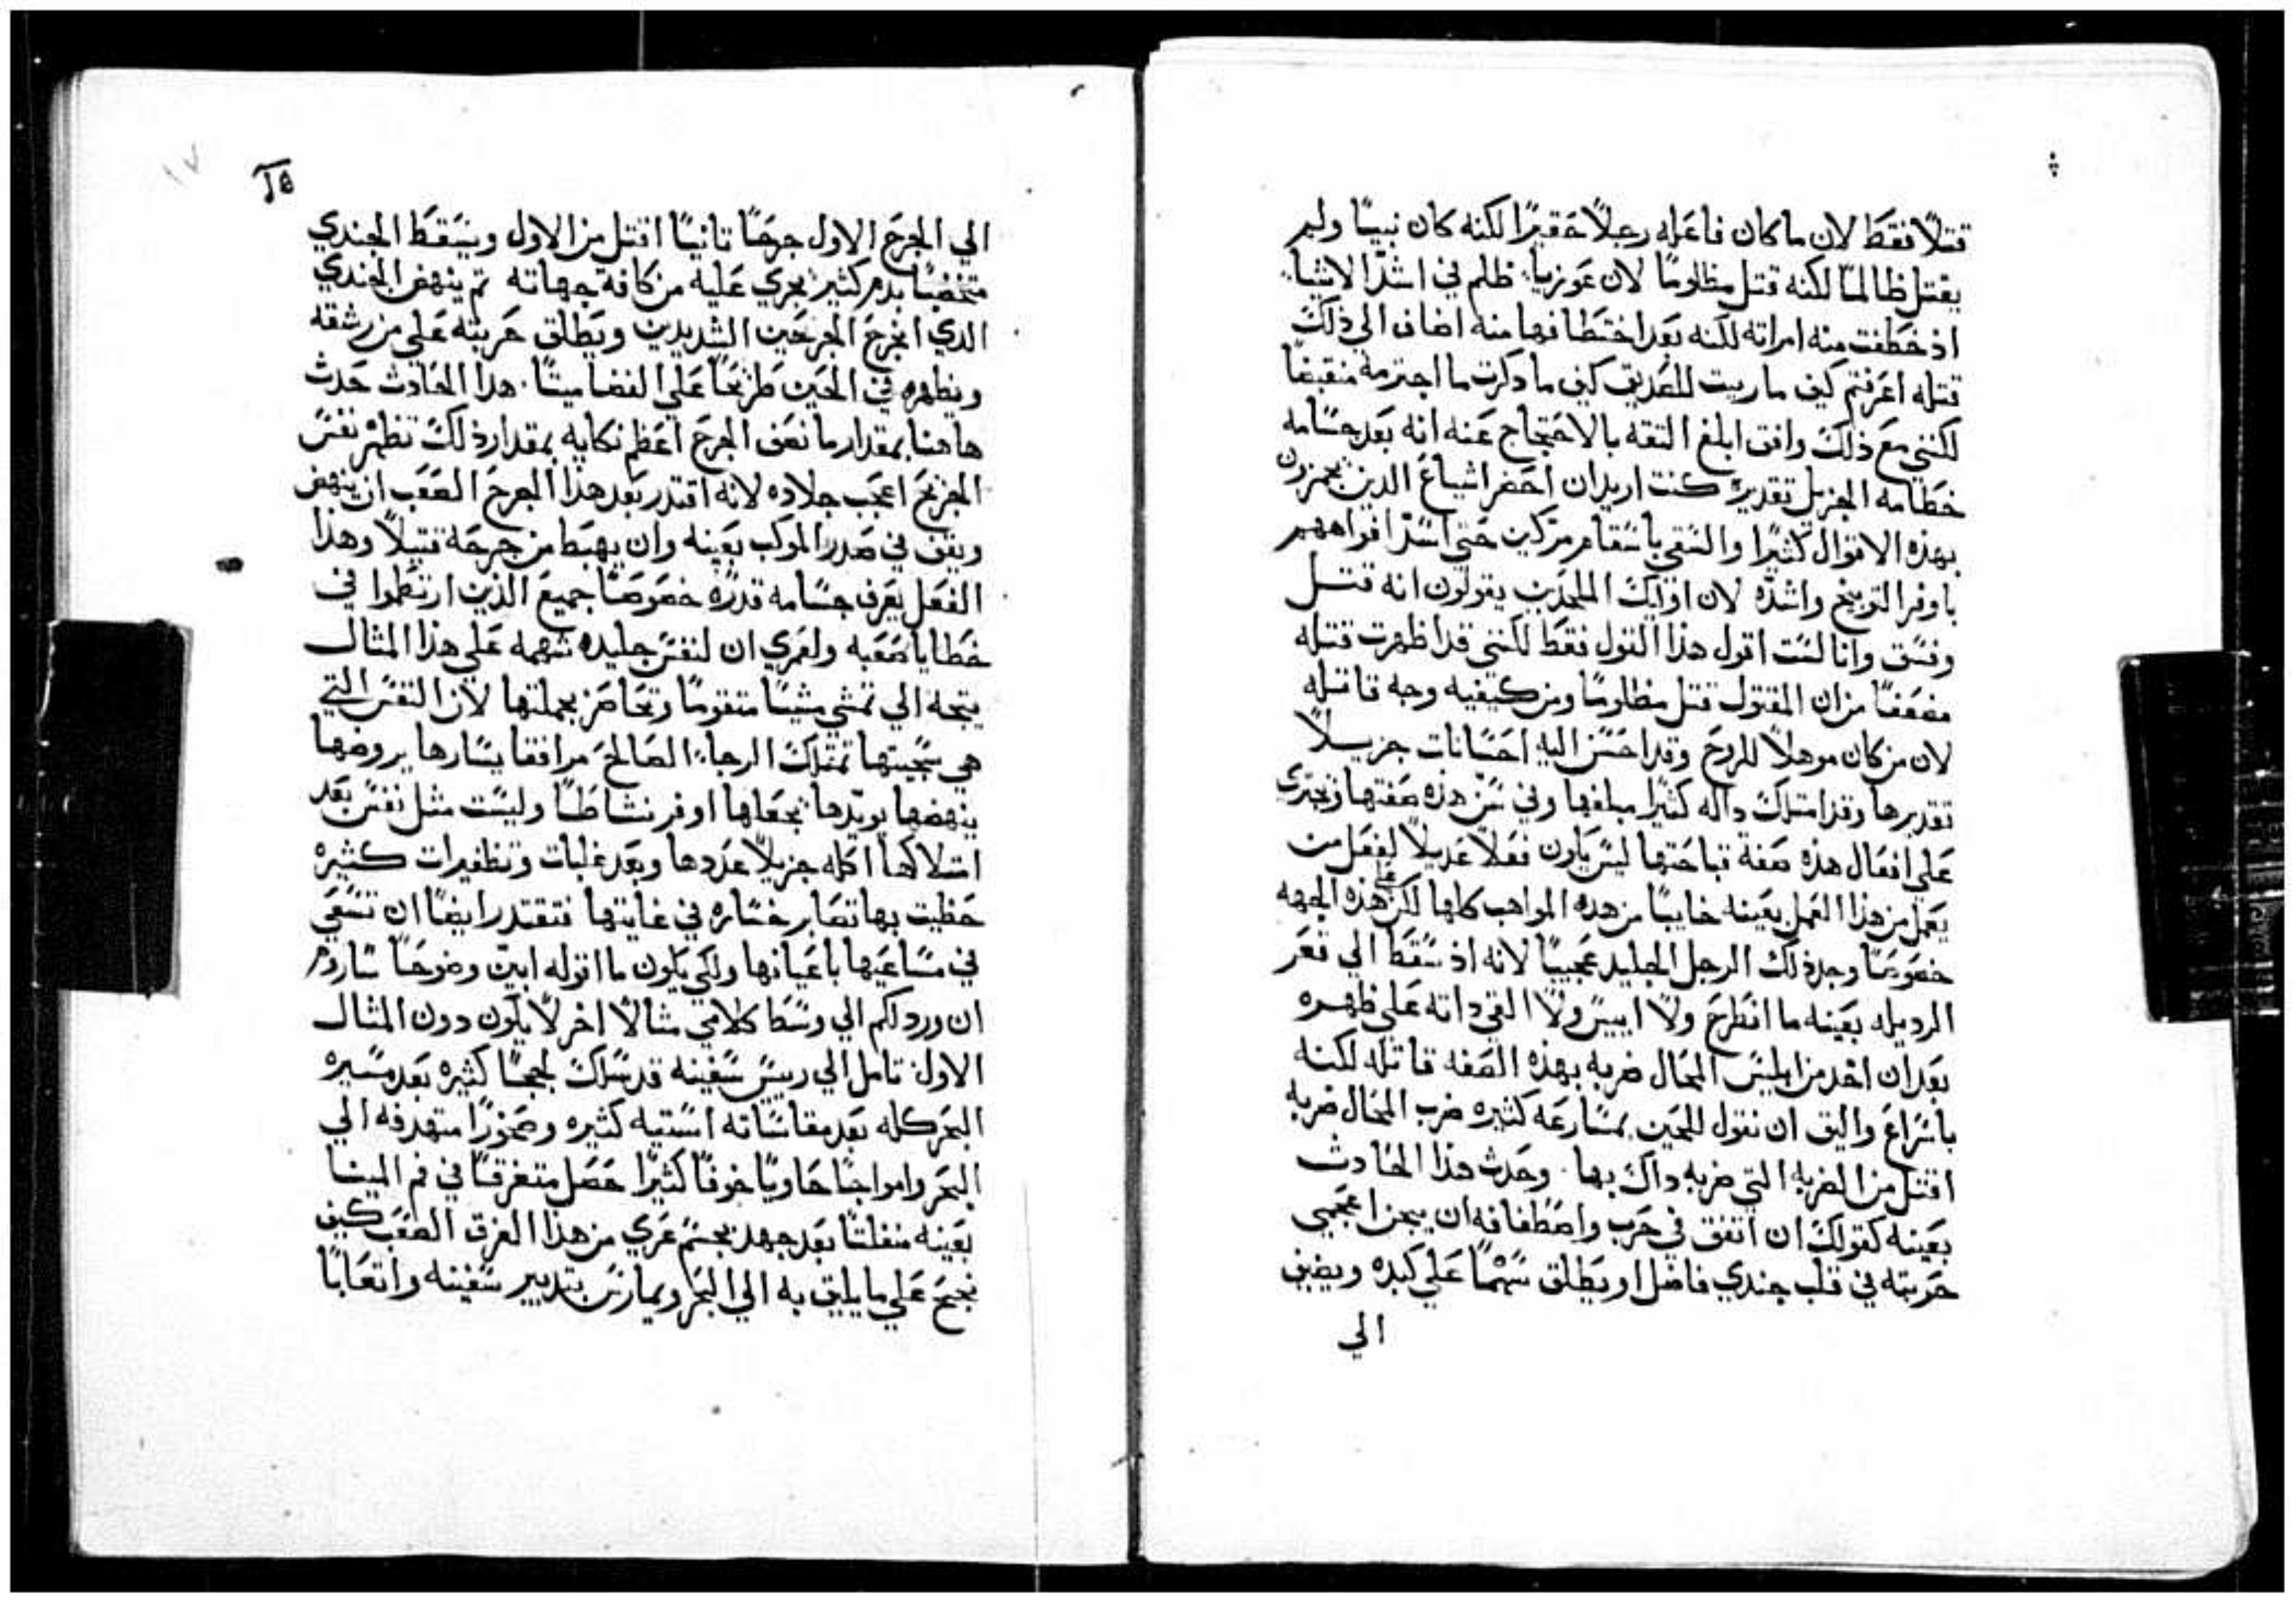 قتلاً فقط لان ما كان فاعله رجلاً حقيرًا لكنه كان نبيًا ولم
يقتل ظالمًا لكنه قتل مظلومًا لان عوزيا ظلم في اشد الاشيا
اذ خطفت منه امراته لكنه بعد اختطافها منه اضاف الي ذلك
قتله اعرفتم كيف ما ربيت للصديق كيف ما دكرت ما اجترمه منقبضًا
لكنني مع ذلك وافق ابلغ التقه بالاحتجاج عنه انه بعد جسامه
خطامه الجزيل تقديره كنت اريد ان احضر اشياع الدين
بهذه الاقوال كثيرًا والسقي باسقام مركين حتي اسد افواههم
باوفر التوبيخ واشده لان اوليك الملحدين يقولون انه قتل
وفسق وانا لست اقول هذا القول فقط لكنني قد اظهرت قتله
مضعفًا من ان المقتول قتل مظلومًا ومن كيفيه وجه قاتله
لان من كان موهلاً للروح وقد احسن اليه احسانات جزيلاً
تقديرها وقد امتلك داله كثيرًا مبلغها وفي سن هذه صفتها وتجري
علي افعال هذه صفة قباحتها ليس يكون فعلاً عديلاً لفعل من
يعمل من هذا العمل بعينه خايبًا من هذه المواهب كلها لكن علي هذه الجهه
خصوصًا وجد ذلك الرجل الجليد عجيبًا لانه اذ سقط الي قعر
الرديله بعينه ما انطرح ولا ايس ولا القي داته علي ظهره
بعد ان اخد من ابليس المحال ضربه بهذه الصفه قاتله لكنه
باسراع واليق ان نقول للحين بمسارعه كثيره ضرب المحال ضربه
اقتل من الضربه التي ضربه داك بها. وحدث هذا الحادث
بعينه كقولك ان اتفق في حرب واصطفافه ان يجز اعجمي
حربته في قلب جندي فاضل او يطلق سهمًا علي كبده ويضيف
الي
١٧
الي الجرح الاول جرحًا تانيًا اقتل من الاول ويسقط الجندي
متخضبًا بدم كثير يجري عليه من كافة جهاته تم ينهض الجندي
الدي انجرح الجرحين الشديدين ويطلق حربته علي من رشقه
ويظهره في الحين طريحًا علي الفضا ميتًا. هدا الحادث حدث
هاهنا بمقدار ما نصف الجرح اعظم نكايه بمقدار ذلك تظهر نفس
الجريح اعجب جلاده لانه اقتدر بعد هذا الجرح الصعب ان ينهض
ويقف في صدر الموكب بعينه وان يهبط من جرحه قتيلاً وهذا
الفعل يعرف جسامه قدره خصوصًا جميع الذين ارتطموا في
خطايا صعبه ولعمري ان لنفس جليده شهمه علي هذا المثال
يتجه الي تمشي مشيًا متقومًا وتحاضر بجملتها لان النفس التي
هي سجيتها تمتلك الرجاء الصالح مرافقا يسارها يروضها
ينهضها يويدها يجعلها اوفر نشاطًا وليست مثل نفس بعد
امتلاكها اكله جزيلاً عددها وبعد غلبات وتظفيرات كثيره
حظيت بها تصابر خساره في غايتها فتقتدر ايضًا ان تسعي
في مساعيها باعيانها ولكي يكون ما اقوله ابين وضوحًا ساروم
ان ورد لكم الي وسط كلامي مثالاً اخر لا يكون دون المثال
الاول تامل الي رييس سفينه قد سلك لججًا كثيره بعد مسيره
البحر كله بعد مقاساته استيه كثيره وصخورًا متهدفه الي
البحر وامواجًا حاويًا خوفًا كثيرًا حصل متغرقًا في فم المينا
بعينه منفلتًا بعد جهد بجسم عري من هذا الغرق الصعب كيف
يجنح علي ما يليق به الي البحر ويمارس بتدبير سفينه واتعابًا